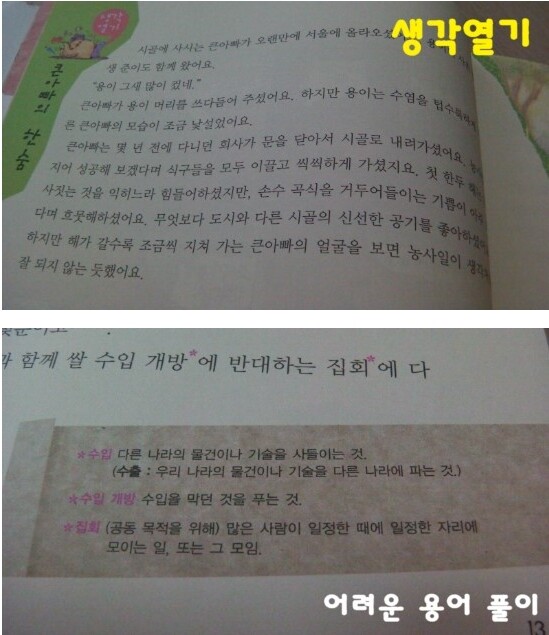 생각열기
생각
열기
큰아빠의 한숨
시골에 사시는 큰아빠가 오랜만에 서울에 올라오셨
생 준이도 함께 왔어요.
"용이 그새 많이 컸네."
큰아빠가 용이 머리를 쓰다듬어 주셨어요. 하지만 용이는 수염을 텁수룩하
든 큰아빠의 모습이 조금 낯설었어요.
큰아빠는 몇 년 전에 다니던 회사가 문을 닫아서 시골로 내려가셨어요.
지어 성공해 보겠다며 식구들을 모두 이끌고 씩씩하게 가셨지요. 첫 한두
사짓는 것을 익히느라 힘들어하셨지만, 손수 곡식을 거두어들이는 기쁨이
다며 흐뭇해하셨어요. 무엇보다 도시와 다른 시골의 신선한 공기를 좋아하셨
하지만 해가 갈수록 조금씩 지쳐 가는 큰아빠의 얼굴을 보면 농사일이 생각
잘 되지 않는 듯했어요.
과 함께 쌀 수입 개방*에 반대하는 집회*에 다
*수입 다른 나라의 물건이나 기술을 사들이는 것.
(수출 : 우리 나라의 물건이나 기술을 다른 나라에 파는 것.)
*수입 개방 수입을 막던 것을 푸는 것.
*집회 (공동 목적을 위해) 많은 사람이 일정한 때에 일정한 자리에
모이는 일, 또는 그 모임.
어려운 용어 풀이
13